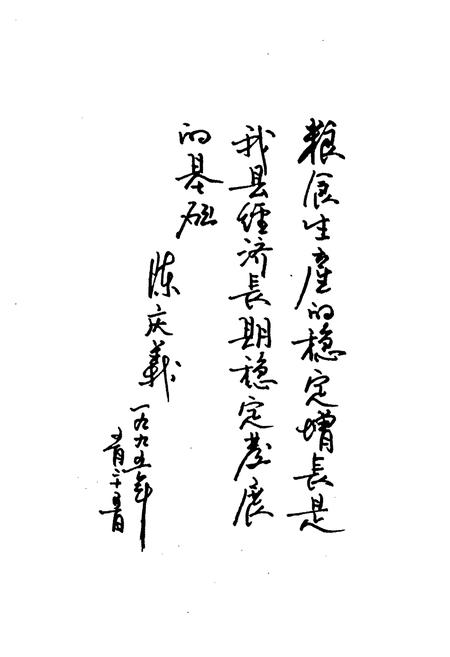 粮食生產的稳定增長是
我县经济長期稳定發展
的基础
陈庆義
一九九五年